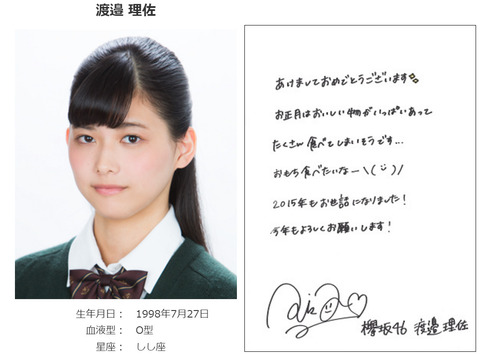 渡邉 理佐
生年月日： 1998年7月27日
血液型： O型
星座： しし座
あけましておめでとうございます
お正月はおいしい物がいっぱいあって
たくさん食べてしまいそうです...
おもち食べたいなー\(¨)/
2015年もお世話になりました！
今年もよろしくお願いします！
欅坂46 渡邉 理佐